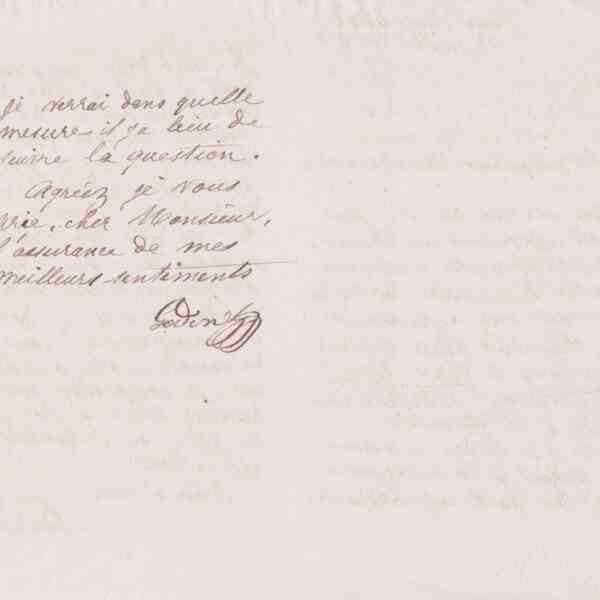 je verrai dans quelle
mesure il y a lieu de
suivre la question.
Agréez je vous
prie, cher Monsieur,
l'assurance de mes
meilleurs sentiments
Godin